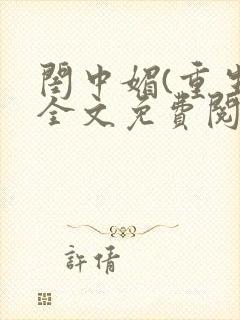 閨中媚(重生
全文免費閱
許倩